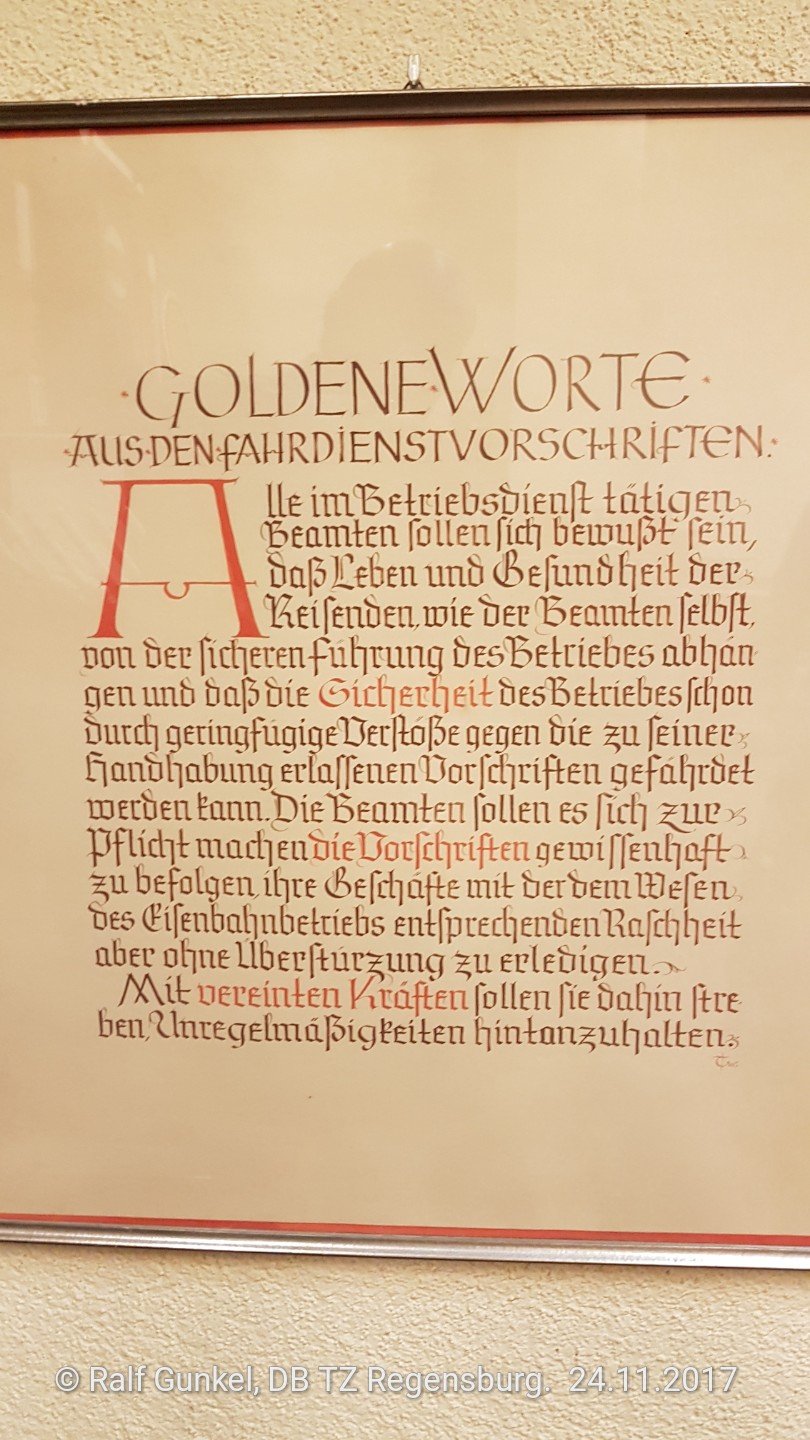 ·GOLDENE·WORTE·
·AUS·DEN·FAHRDIENSTVORSCHRIFTEN.·
Alle im Betriebsdienst tätigen
Beamten sollen sich bewußt sein,
daß Leben und Gesundheit der
Reisenden, wie der Beamten selbst,
von der sicheren Führung des Betriebes abhän
gen und daß die Sicherheit des Betriebes schon
durch geringfügige Verstöße gegen die zu seiner
Handhabung erlassenen Vorschriften gefährdet
werden kann. Die Beamten sollen es sich zur
Pflicht machen die Vorschriften gewissenhaft
zu befolgen, ihre Geschäfte mit der dem Wesen
des Eisenbahnbetriebs entsprechenden Raschheit
aber ohne Überstürzung zu erledigen.
Mit vereinten Kräften sollen sie dahin stre
ben, Unregelmäßigkeiten hintanzuhalten.
© Ralf Gunkel, DB TZ Regensburg. 24.11.2017